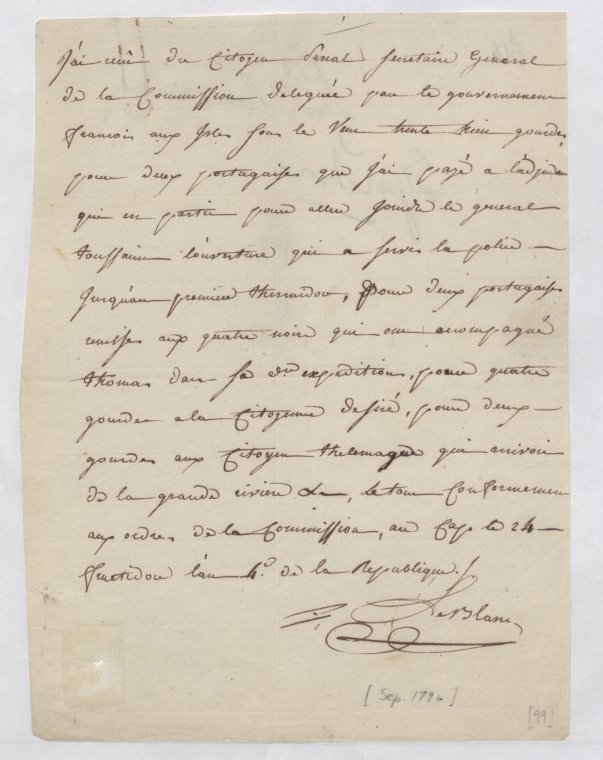 J'ai reçu du Citoyen Pascal Secretaire General
de la Commission deleguée par le gouvernement
francois aux Isles sous le Vent trente huit gourdes,
pour deux portugaises que J'ai payé a l'adjudan
qui en partie pour aller Joindre le général
toussaint louverture qui a servis la police —
Jusqu'au premiere thermidor, pour deux portugaises
remisses aux quatre noire qui ont acompagné
thomas dans sa dre expedition, pour quatre
gourdes a la Citoyenne desiré, pour deux —
gourdes aux Citoyen thelemaque qui arrivoit
de la grande riviere &a, le tout Conformement
aux ordres de la Commission, au Cap le 24 —
fructidor l'an 4e de la Republique./.
LeBlanc
[Sep. 1796]
[99]